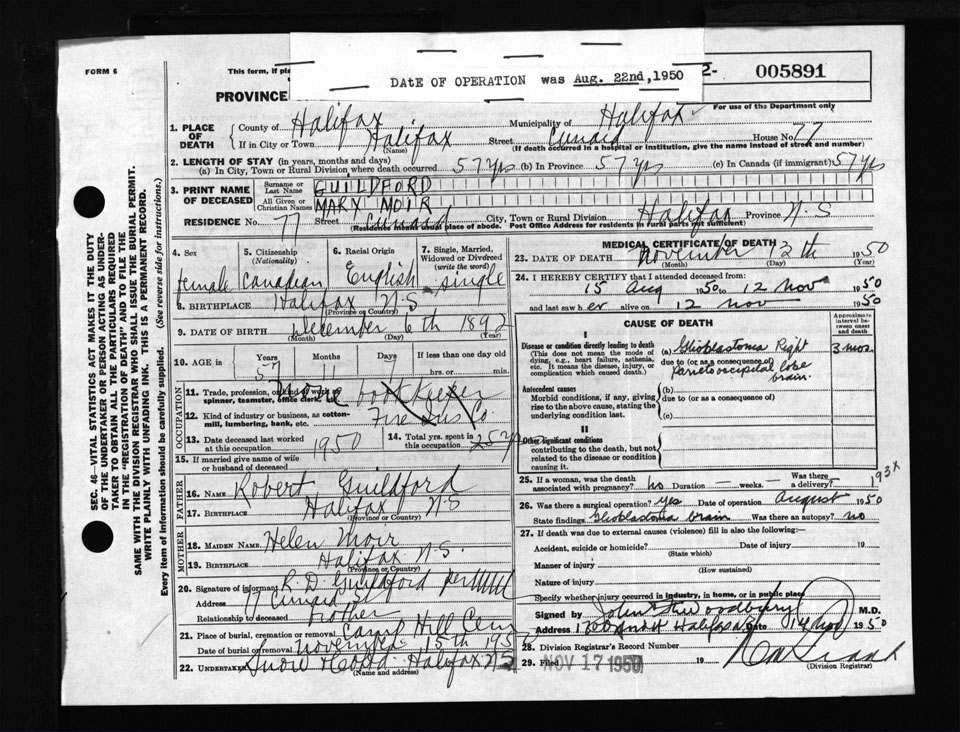 DATE OF OPERATION was Aug. 22nd, 1950
FORM 6
This form, if
2- 005891
PROVINCE
For use of the Department only
1. PLACE OF DEATH
County of Halifax
Municipality of Halifax
If in City or Town Halifax (Name) Street Cunard House No. 77
(If death occurred in a hospital or institution, give the name instead of street and number)
2. LENGTH OF STAY (in years, months and days)
(a) In City, Town or Rural Division where death occurred 57 yrs (b) In Province 57 yrs (c) In Canada (if immigrant) 57 yrs
3. PRINT NAME OF DECEASED
Surname or Last Name GUILDFORD
All Given or Christian Names MARY MOIR
RESIDENCE No. 77 Street Cunard City, Town or Rural Division Halifax Province N.S
(Residence means usual place of abode. Post Office Address for residents in rural parts not sufficient)
4. Sex
female
5. Citizenship (Nationality)
Canadian
6. Racial Origin
English
7. Single, Married, Widowed or Divorced (write the word)
single
8. BIRTHPLACE Halifax N.S
(Province or Country)
9. DATE OF BIRTH December 6th 1892
(Month) (Day) (Year)
10. AGE in
Years Months Days If less than one day old
57 11
hrs. or min.
OCCUPATION
11. Trade, profession, or kind of work as spinner, teamster, office clerk, etc. bookkeeper
12. Kind of industry or business, as cotton-mill, lumbering, bank, etc. Fire Ins Co.
13. Date deceased last worked at this occupation 1950
14. Total yrs. spent in this occupation 25 yrs
15. If married give name of wife or husband of deceased
FATHER
16. Name Robert Guildford
17. Birthplace Halifax N-S
(Province or Country)
MOTHER
18. Maiden Name Helen Moir
19. Birthplace Halifax N.S.
(Province or Country)
20. Signature of informant R. D. Guildford per
Address 77 Cunard St
Relationship to deceased Brother
21. Place of burial, cremation or removal Camp Hill Cem
Date of burial or removal November 15th 1950
22. Undertaker Snow & Co Ltd. Halifax N S
(Name and address)
MEDICAL CERTIFICATE OF DEATH
23. DATE OF DEATH November 12th 1950
(Month) (Day) (Year)
24. I HEREBY CERTIFY that I attended deceased from:
15 Aug 1950 to 12 Nov 1950
and last saw her alive on 12 Nov 1950
CAUSE OF DEATH
Approximate interval between onset and death
I
Disease or condition directly leading to death
(This does not mean the mode of dying, e.g., heart failure, asthenia, etc. It means the disease, injury, or complication which caused death.)
(a) Glioblastoma Right
due to (or as a consequence of)
Parieto occipital lobe brain.
3 mos.
Antecedent causes
Morbid conditions, if any, giving rise to the above cause, stating the underlying condition last.
(b)
due to (or as a consequence of)
(c)
II
Other significant conditions
contributing to the death, but not related to the disease or condition causing it.
193X
25. If a woman, was the death associated with pregnancy? no Duration — weeks. — Was there a delivery? —
26. Was there a surgical operation? yes Date of operation August 1950
State findings Glioblastoma brain Was there an autopsy? no
27. If death was due to external causes (violence) fill in also the following:
Accident, suicide or homicide? Date of injury 19
(State which)
Manner of injury
(How sustained)
Nature of injury
Specify whether injury occurred in industry, in home, or in public place
Signed by Woodbury M.D.
Address Halifax Date 14 Nov 1950
28. Division Registrar's Record Number
29. Filed NOV 17 1950 19
(Division Registrar)
SEC. 46—VITAL STATISTICS ACT MAKES IT THE DUTY
OF THE UNDERTAKER OR PERSON ACTING AS UNDERTAKER TO OBTAIN ALL THE PARTICULARS REQUIRED
IN THE "REGISTRATION OF DEATH" AND TO FILE THE
SAME WITH THE DIVISION REGISTRAR WHO SHALL ISSUE THE BURIAL PERMIT.
WRITE PLAINLY WITH UNFADING INK. THIS IS A PERMANENT RECORD.
Every item of information should be carefully supplied. (See reverse side for instructions.)